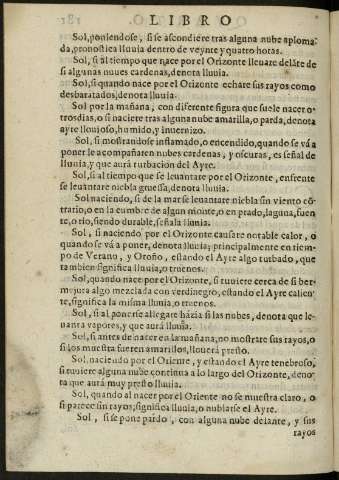 LIBRO
Sol, poniendose, si se ascondiere tras alguna nube aploma-
da, pronostica lluuia dentro de veynte y quatro horas.
Sol, si al tiempo que nace por el Orizonte lleuare deláte de
si algunas nuues cardenas, denota lluuia.
Sol, si quando nace por el Orizonte echare sus rayos como
desbaratados, denota lluuia.
Sol por la mañana, con diferente figura que suele nacer o-
tros dias, o si naciere tras alguna nube amarilla, o parda, denota
ayre lluuioso, humido, y inuernizo.
Sol, si mostrandose inflamado, o encendido, quando se và a
poner le acompañaren nubes cardenas, y oscuras, es señal de
lluuia, y que aurà turbacion del Ayre.
Sol, si al tiempo que se leuantare por el Orizonte, en frente
se leuantare niebla gruessa, denota lluuia.
Sol naciendo, si de la mar se leuantare niebla sin viento cõ-
trario, o en la cumbre de algun monte, o en prado, laguna, fuen-
te, o rio, siendo durable, señala lluuia.
Sol, si naciendo por el Orizonte causare notable calor, o
quando se và a poner, denota lluuia; principalmente en tiem-
po de Verano, y Otoño, estando el Ayre algo turbado, que
tambien significa lluuia, o truenos.
Sol, quando nace por el Orizonte, si tuuiere cerca de si ber-
mejura algo mezclada con verdinegro, estando el Ayre calien-
te, significa la misma lluuia, o truenos.
Sol, si al ponerse allegare hàzia si las nubes, denota que le-
uanta vapores, y que aurà lluuia.
Sol, si antes de nacer en la mañana, no mostrare sus rayos, o
si los muestra fueren amarillos, llouerà presto.
Sol, naciendo por el Oriente, y estando el Ayre tenebroso,
si tuuiere alguna nube continua a lo largo del Orizonte, deno-
ta que aurà muy presto lluuia.
Sol, quando al nacer por el Oriente no se muestra claro, o
si parece sin rayos, significa lluuia, o nublarse el Ayre.
Sol, si se pone pardo, con alguna nube delante, y sus
rayos